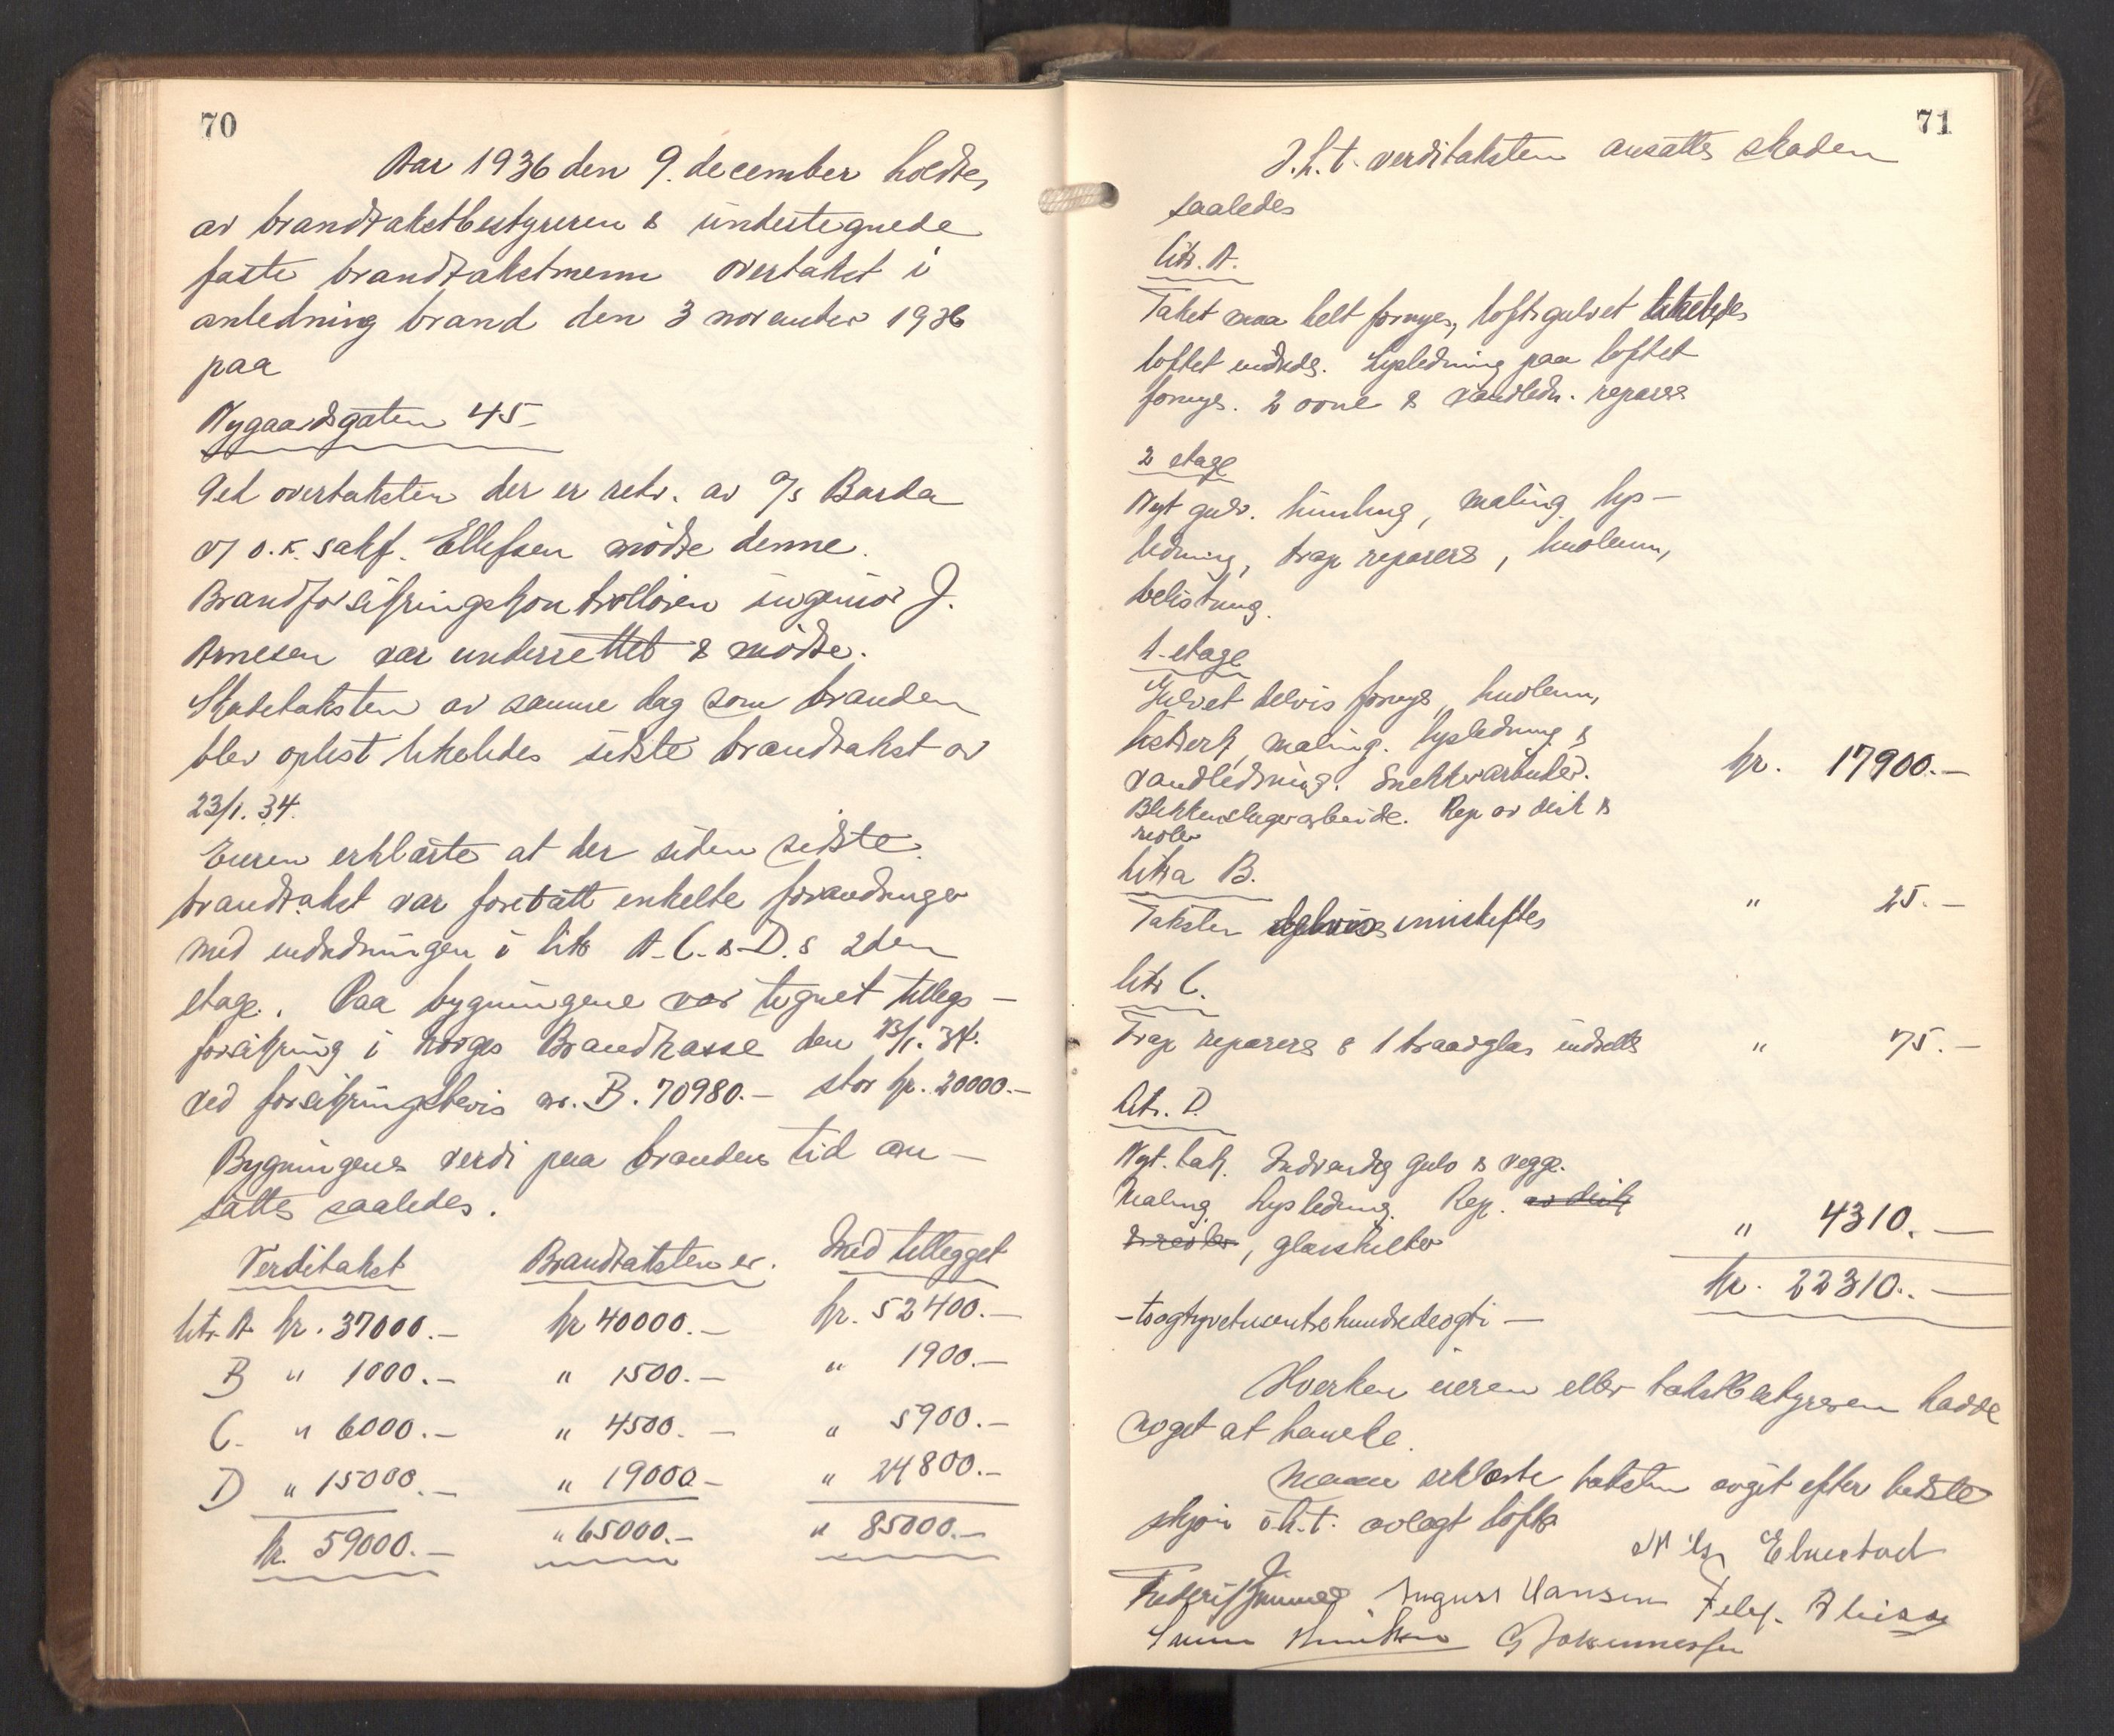 70
Aar 1936 den 9. december holdtes
av brandtakstbestyreren & undertegnede
faste brandtakstmenn overtakst i
anledning brand den 3 november 1936
paa
Nygaardsgaten 45
Ved overtaksten der er rekv. av A/s Barda
v/ o.r. sakf. Ellefsen mødte denne.
Brandforsikringskontrolløren ingeniør J.
Arnesen var underrettet & mødte.
Skadetaksten av samme dag som branden
blev oplest likeledes sidste brandtakst av
23/1. 34.
Eieren erklærte at der siden sidste
brandtakst var foretatt enkelte forandringer
med indredningen i litr A. C. & D.s 2den
etage. Paa bygningene var tegnet tillegs-
forsikring i Norges Brandkasse den 23/1. 34.
ved forsikringsbevis nr. B. 70980.- stor kr. 20000.-
Bygningenes verdi paa brandens tid an-
sattes saaledes.
Verditakst Brandtaksten er. Med tillegget
Litr. A kr. 37000.- kr 40000.- kr. 52400.-
B " 1000.- " 1500.- " 1900.-
C. " 6000.- " 4500.- " 5900.-
D " 15000.- " 19000- " 24800.-
kr. 59000.- " 65000.- " 85000.-
71
I.h.t. verditaksten ansattes skaden
saaledes
Litr. A.
Taket maa helt fornyes, loftsgulvet likeledes
loftet indredes. Lysledning paa loftet
fornyes. 2 ovne & vandledn. repareres
2 etage
Nyt gulv. himling, maling lys-
ledning, trap repareres, linoleum,
belistning.
1. etage
Gulvet delvis fornyes, linoleum,
listverk, maling. lysledning &
vandledning. Snekkerarbeider. kr. 17900.-
Blikkenslagerarbeide. Rep av disk &
reoler
Litra B.
Taksten delvis innskiftes " 25.-
Litr C.
Trap repareres & 1 traadglas indsettes " 75.-
Litr. D.
Nyt. tak. Indvendig gulv & vegge.
Maling, Lysledning. Rep. av disk
& reoler, glasskilter " 4310.-
kr. 22310.-
-toogtyvetusentrehundredeogti-
Hverken eieren eller takstbestyreren hadde
noget at bemerke.
Menn erklærte taksten avgit efter bedste
skjøn i h.t. avlagt løfte
Nils Elnestad
August Hansen
Johannessen